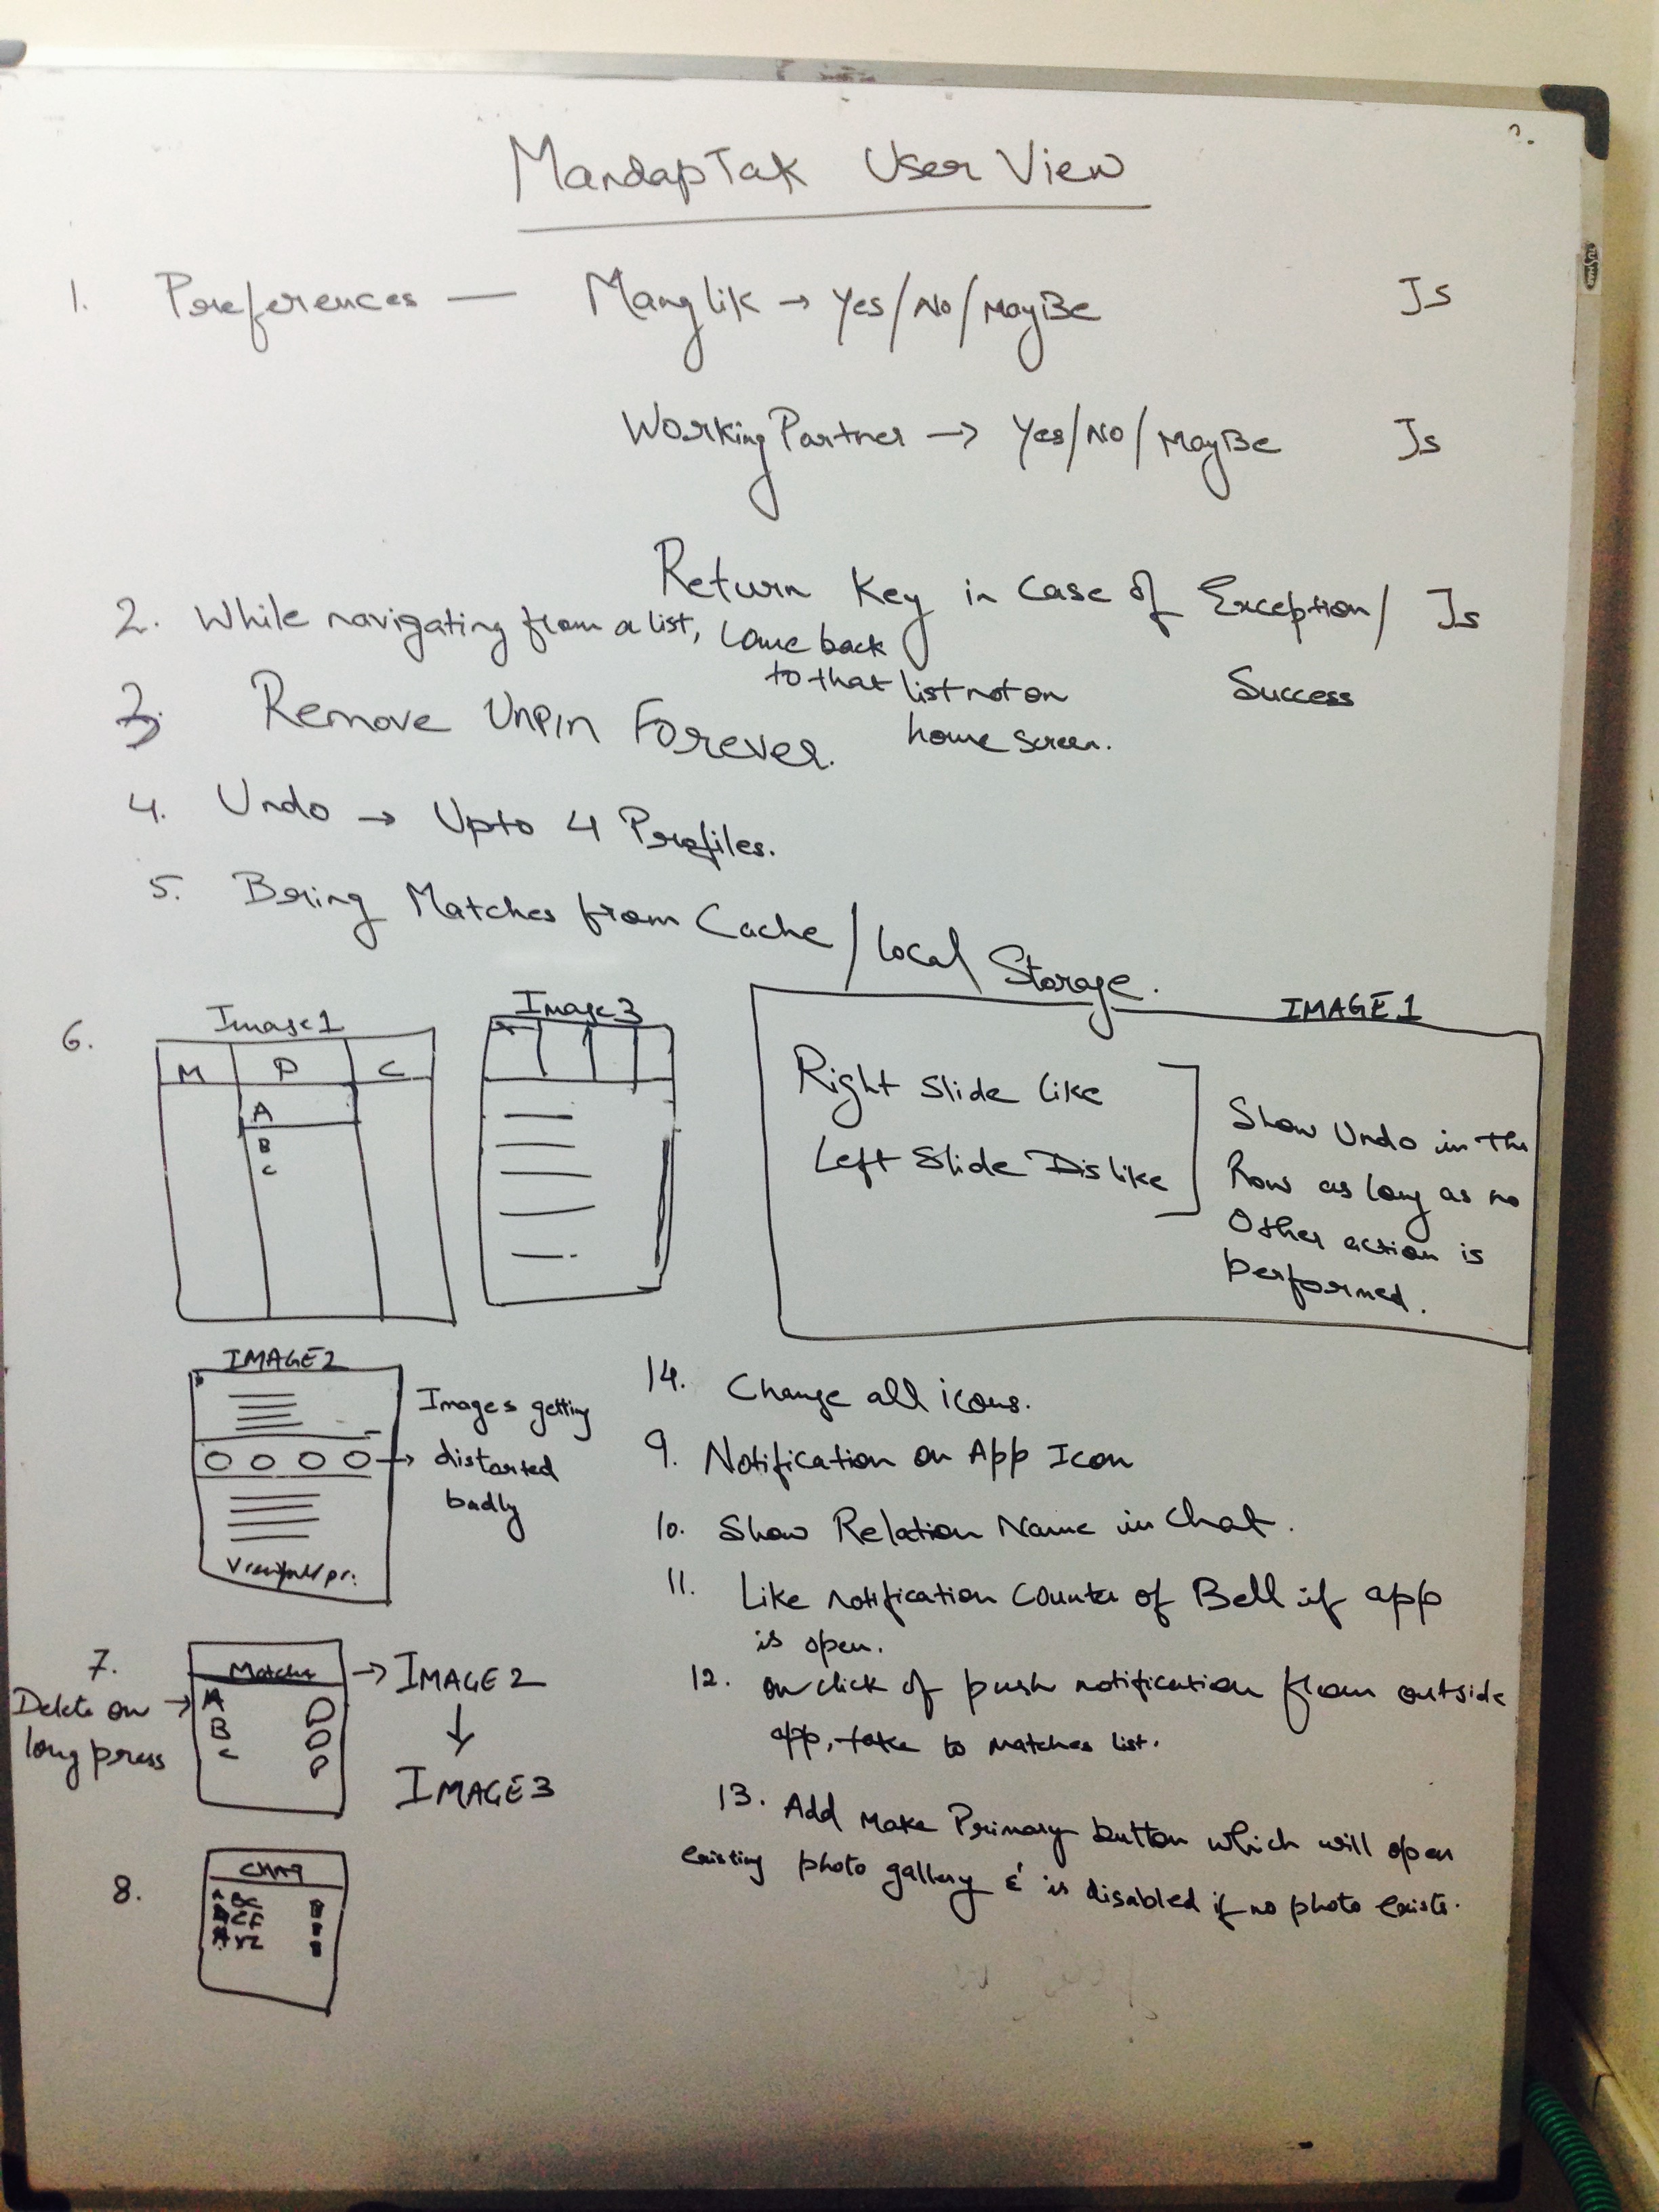 MandapTak User View
1. Preferences — Manglik → Yes/No/MayBe Js
Working Partner → Yes/No/MayBe Js
Return Key in Case of Exception/ Js
Success
2. While navigating from a list, come back
to that list not on
home screen.
3. Remove Unpin Forever.
4. Undo → Upto 4 Profiles.
5. Bring Matches from Cache/local Storage.
6.
Image1
M P C
A
B
C
Image3
IMAGE1
Right Slide Like
Left Slide Dislike
Show Undo in the
Row as long as no
Other action is
performed.
IMAGE2
Images getting
distorted
badly
7.
Delete on
long press →
Matches
A
B
C
→ IMAGE2
↓
IMAGE3
8.
14. Change all icons.
9. Notification on App Icon
10. Show Relation Name in Chat.
11. Like notification counter of Bell if app
is open.
12. on click of push notification from outside
app, take to matches list.
13. Add Make Primary button which will open
existing photo gallery & is disabled if no photo exists.